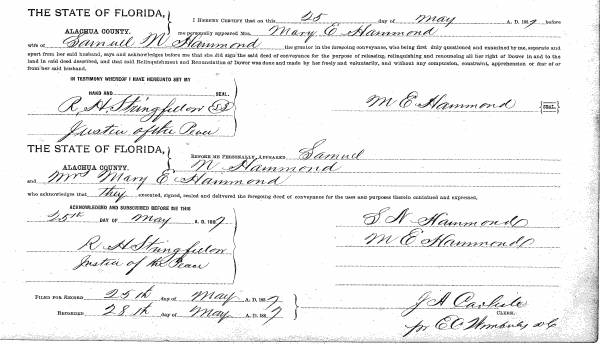 THE STATE OF FLORIDA, I HEREBY CERTIFY that on this 25 day of May A. D. 1887 before
ALACHUA COUNTY. me personally appeared Mrs. Mary E Hammond
wife of Samuel M Hammond the grantor in the foregoing conveyance, who being first duly questioned and examined by me, separate and
apart from her said husband, says and acknowledges before me that she did sign the said deed of conveyance for the purpose of releasing, relinquishing and renouncing all her right of Dower in and to the
land in said deed described, and that said Relinquishment and Renunciation of Dower was done and made by her freely and voluntarily, and without any compulsion, constraint, apprehension or fear of or
from her said husband.
IN TESTIMONY WHEREOF I HAVE HEREUNTO SET MY
HAND AND SEAL.
R. H. Stringfellow M E Hammond SEAL.
Justice of the Peace
THE STATE OF FLORIDA, BEFORE ME PERSONALLY APPEARED Samuel
ALACHUA COUNTY. M Hammond
and Mrs Mary E Hammond
who acknowledges that they executed, signed, sealed and delivered the foregoing deed of conveyance for the uses and purposes therein contained and expressed.
ACKNOWLEDGED AND SUBSCRIBED BEFORE ME THIS
25th DAY OF May A. D. 1887 S N Hammond
M E Hammond
R H Stringfellow
Justice of the Peace
FILED FOR RECORD 25th day of May A. D. 1887
J A Carlisle
RECORDED 28th day of May A. D. 1887 CLERK.
for E C